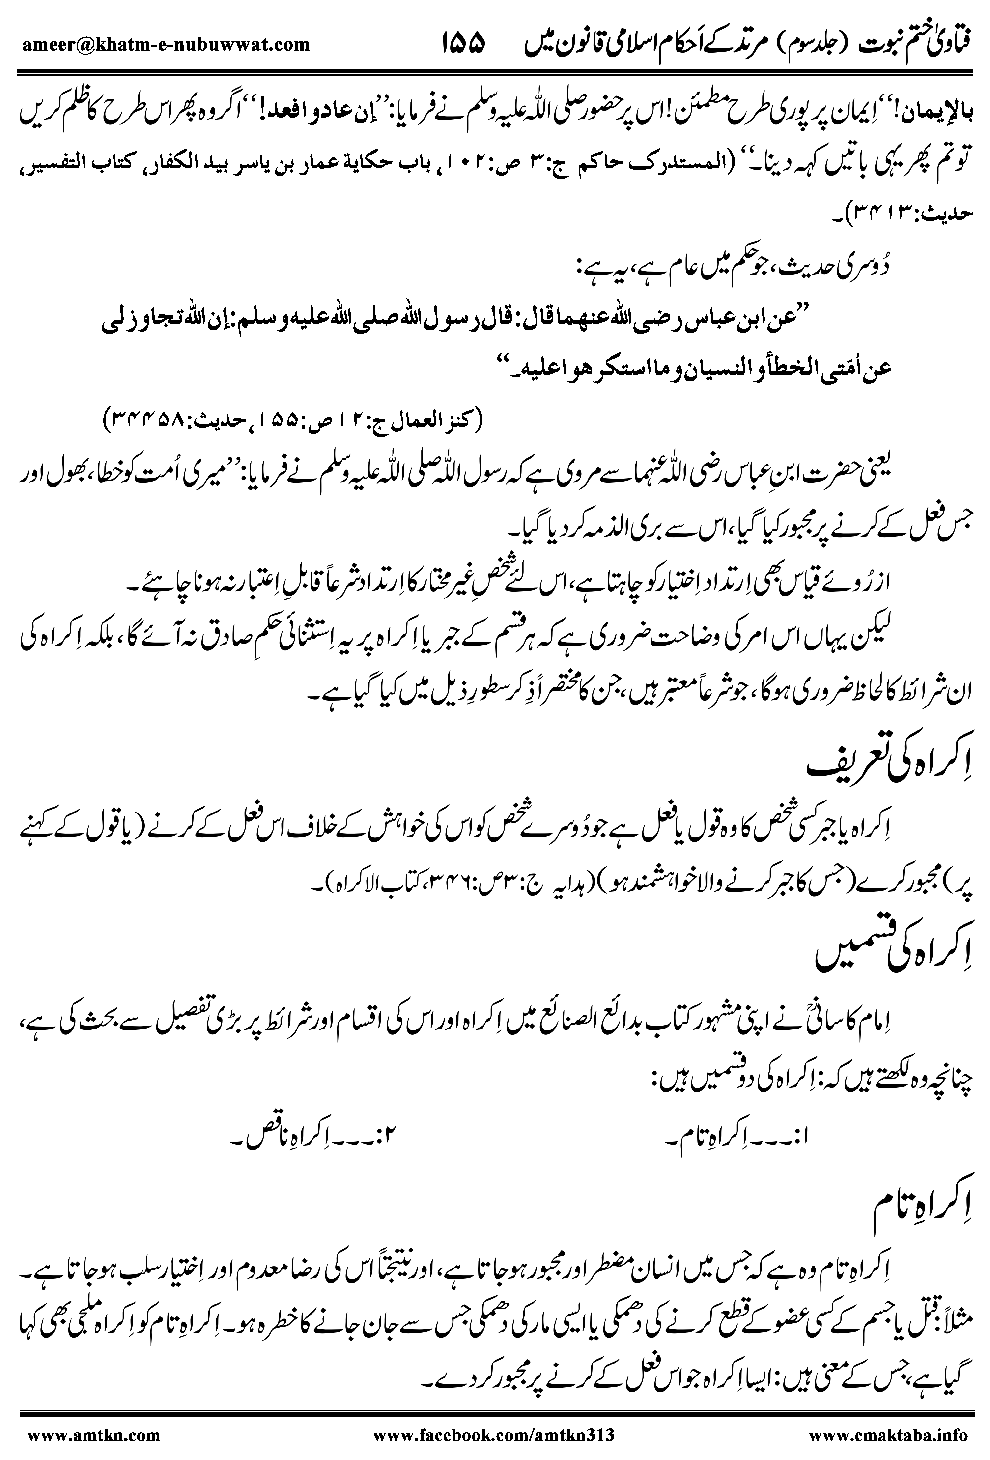 فتاویٰ ختم نبوت (جلد سوم) مرتد کے اَحکام اسلامی قانون میں ۱۵۵ ameer@khatm-e-nubuwwat.com
بالإیمان!‘‘ اِیمان پر پوری طرح مطمئن! اس پر حضور صلی اللہ علیہ وسلم نے فرمایا: ’’إن عادوا فعد!‘‘ اگر وہ پھر اس طرح کا ظلم کریں
تو تم پھر یہی باتیں کہہ دینا۔‘‘ (المستدرک حاکم ج:۳ ص:۱۰۲، باب حکایة عمار بن یاسر بید الکفار، کتاب التفسیر،
حدیث:۳۴۱۳)۔
دُوسری حدیث، جو حکم میں عام ہے، یہ ہے:
’’عن ابن عباس رضی اللہ عنہما قال: قال رسول اللہ صلی اللہ علیہ وسلم: إن اللہ تجاوز لی
عن اُمّتی الخطأ والنسیان وما استکرھوا علیہ۔‘‘
(کنز العمال ج:۱۲ ص:۱۵۵، حدیث:۳۴۴۵۸)
یعنی حضرت ابنِ عباس رضی اللہ عنہما سے مروی ہے کہ رسول اللہ صلی اللہ علیہ وسلم نے فرمایا: ’’میری اُمت کو خطا، بھول اور
جس فعل کے کرنے پر مجبور کیا گیا، اس سے بری الذمہ کردیا گیا۔
ازرُوئے قیاس بھی اِرتداد اِختیار کو چاہتا ہے، اس لئے شخصِ غیرمختار کا اِرتداد شرعاً قابلِ اِعتبار نہ ہونا چاہئے۔
لیکن یہاں اس امر کی وضاحت ضروری ہے کہ ہر قسم کے جبر یا اِکراہ پر یہ اِستثنائی حکم صادق نہ آئے گا، بلکہ اِکراہ کی
ان شرائط کا لحاظ ضروری ہوگا، جو شرعاً معتبر ہیں، جن کا مختصراً ذِکر سطورِ ذیل میں کیا گیا ہے۔
اِکراہ کی تعریف
اِکراہ یا جبر کسی شخص کا وہ قول یا فعل ہے جو دُوسرے شخص کو اس کی خواہش کے خلاف اس فعل کے کرنے (یا قول کے کہنے
پر) مجبور کرے (جس کا جبر کرنے والا خواہشمند ہو) (ہدایہ ج:۳ ص:۳۴۶، کتاب الاکراہ)۔
اِکراہ کی قسمیں
اِمام کاسانیؒ نے اپنی مشہور کتاب بدائع الصنائع میں اِکراہ اور اس کی اقسام اور شرائط پر بڑی تفصیل سے بحث کی ہے،
چنانچہ وہ لکھتے ہیں کہ: اِکراہ کی دو قسمیں ہیں:
۱:۔۔۔ اِکراہِ تام۔ ۲:۔۔۔ اِکراہِ ناقص۔
اِکراہِ تام
اِکراہِ تام وہ ہے کہ جس میں انسان مضطر اور مجبور ہوجاتا ہے، اور نتیجتاً اس کی رضا معدوم اور اِختیار سلب ہوجاتا ہے۔
مثلاً: قتل یا جسم کے کسی عضو کے قطع کرنے کی دھمکی یا ایسی مار کی دھمکی جس سے جان جانے کا خطرہ ہو۔ اِکراہِ تام کو اِکراہ ملجی بھی کہا
گیا ہے، جس کے معنی ہیں: ایسا اِکراہ جو اس فعل کے کرنے پر مجبور کردے۔
www.amtkn.com www.facebook.com/amtkn313 www.cmaktaba.info